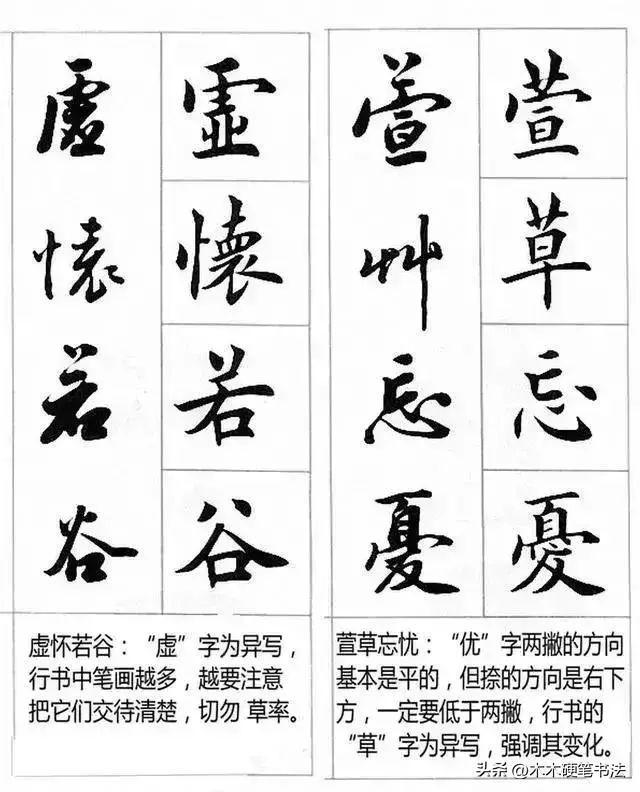 虚懷若谷
虚懷若谷
萱艸忘憂
萱草忘憂
虚怀若谷：“虚”字为异写，
行书中笔画越多，越要注意
把它们交待清楚，切勿 草率。
萱草忘忧：“优”字两撇的方向
基本是平的，但捺的方向是右下
方，一定要低于两撇，行书的
“草”字为异写，强调其变化。
头条@木木硬笔书法